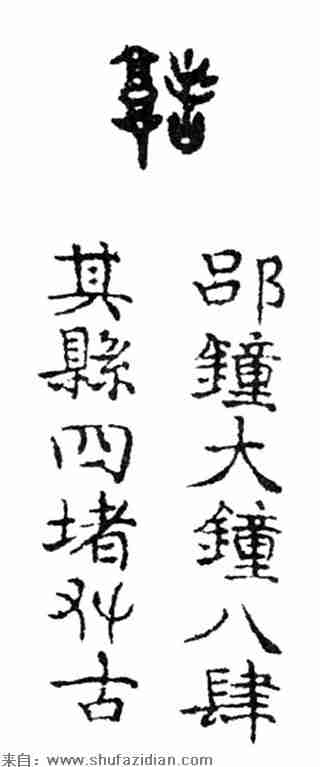 郘鐘大鐘八肆
其縣四堵古
来自：www.shufazidian.com